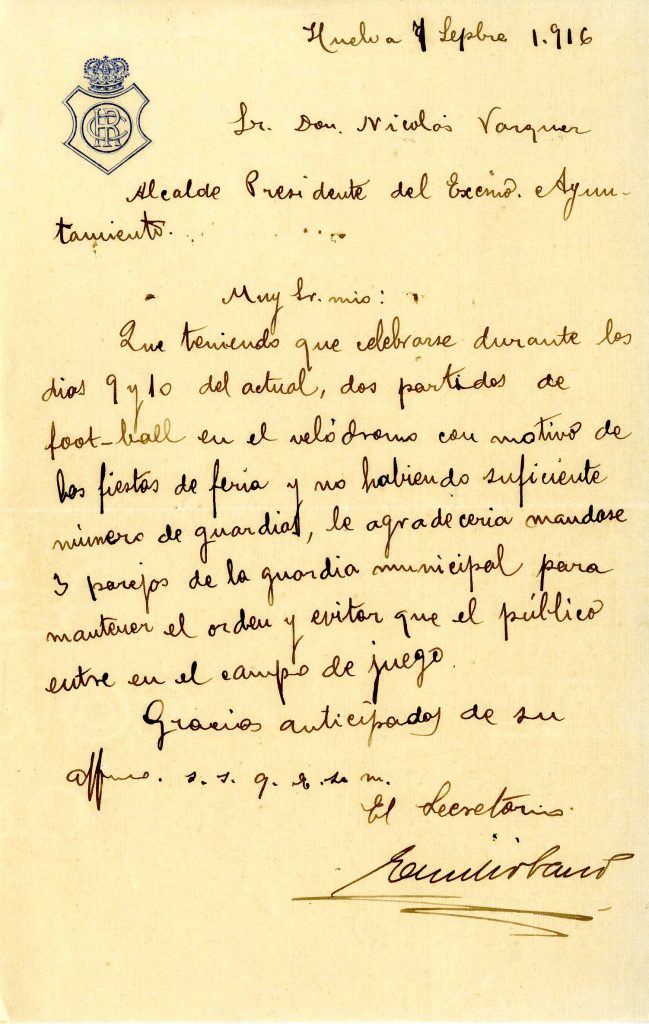 Huelva 7 Sepbre 1.916
Sr. Don. Nicolás Vazquez
Alcalde Presidente del Excmo. Ayun-
tamiento.
Muy Sr. mio:
Que teniendo que celebrarse durante los
dias 9 y 10 del actual, dos partidos de
foot-ball en el velódromo con motivo de
las fiestas de feria y no habiendo suficiente
número de guardias, le agradeceria mandase
3 parejas de la guardia municipal para
mantener el orden y evitar que el público
entre en el campo de juego.
Gracias anticipadas de su
affmo. s. s. q. e. s. m.
El Secretario.